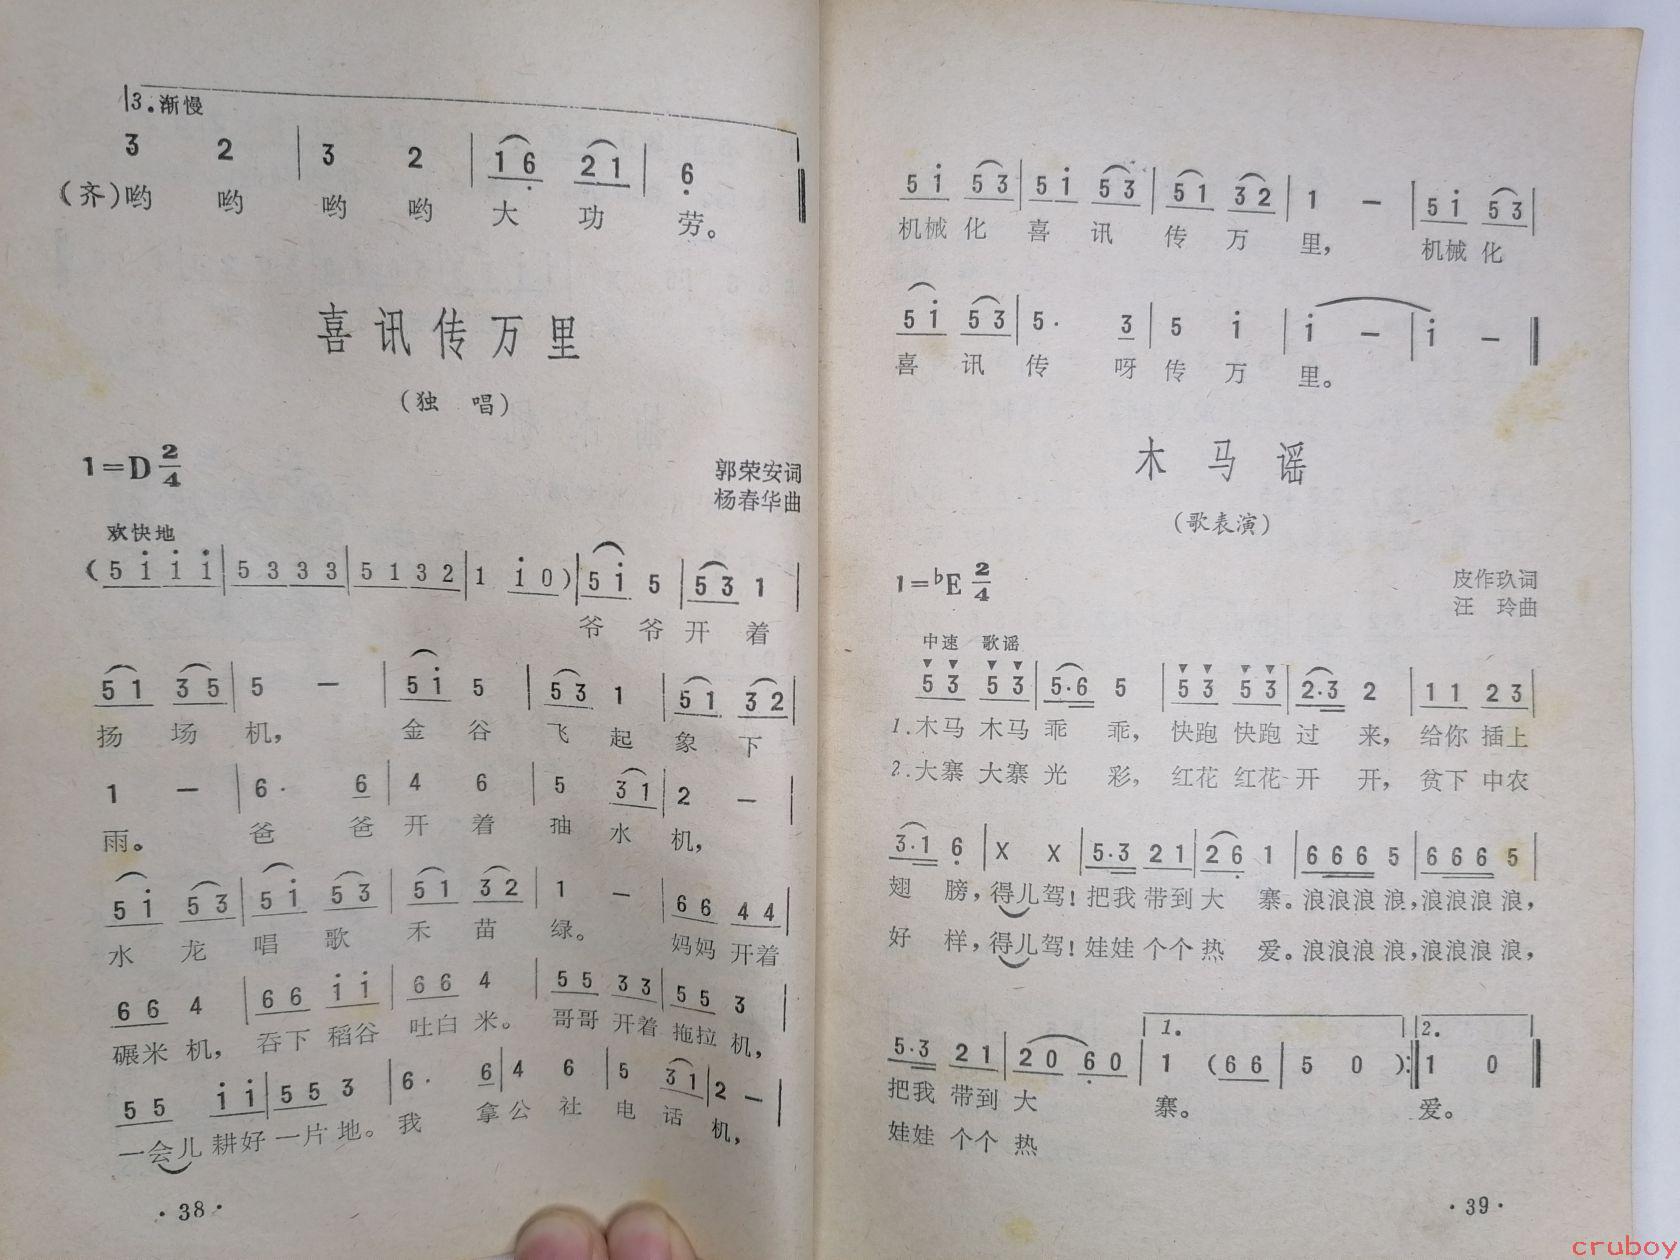 3.渐慢
3 2 | 3 2 | 1 6 2 1 | 6
(齐)哟 哟 哟 哟 大 功 劳。
喜讯传万里
(独 唱)
1=D 2/4
郭荣安词
杨春华曲
欢快地
(5 i i i | 5 3 3 3 | 5 1 3 2 | 1 i 0) | 5 i 5 | 5 3 1 |
爷 爷 开 着
5 1 3 5 | 5 — | 5 i 5 | 5 3 1 | 5 1 3 2 |
扬 场 机, 金 谷 飞 起 象 下
1 — | 6· 6 | 4 6 | 5 3 1 | 2 — |
雨。 爸 爸 开 着 抽 水 机,
5 i 5 3 | 5 i 5 3 | 5 1 3 2 | 1 — | 6 6 4 4 |
水 龙 唱 歌 禾 苗 绿。 妈妈 开着
6 6 4 | 6 6 i i | 6 6 4 | 5 5 3 3 | 5 5 3 |
碾米 机, 吞下 稻谷 吐白 米。 哥哥 开着 拖拉 机,
5 5 i i | 5 5 3 | 6· 6 | 4 6 | 5 3 1 | 2 — |
一会儿 耕好 一片 地。 我 拿 公 社 电 话 机,
·38·
5 i 5 3 | 5 i 5 3 | 5 1 3 2 | 1 — | 5 i 5 3 |
机械 化 喜 讯 传 万 里, 机械 化
5 i 5 3 | 5· 3 | 5 i | i — | i — ‖
喜 讯 传 呀 传 万 里。
木马谣
(歌表演)
1=♭E 2/4
皮作玖词
汪 玲曲
中速 歌谣
5 3 5 3 | 5·6 5 | 5 3 5 3 | 2·3 2 | 1 1 2 3 |
1.木马 木马 乖 乖, 快跑 快跑 过 来, 给你 插上
2.大寨 大寨 光 彩, 红花 红花 开 开, 贫下 中农
3·1 6 | X X | 5·3 2 1 | 2 6 1 | 6 6 6 5 | 6 6 6 5 |
翅 膀, 得儿驾! 把我 带到 大 寨。浪浪浪 浪,浪浪浪 浪,
好 样, 得儿驾! 娃娃 个个 热 爱。浪浪浪 浪,浪浪浪 浪,
1. 2.
5·3 2 1 | 2 0 6 0 | 1 (6 6 | 5 0 ):‖ 1 0 ‖
把我 带到 大 寨。 爱。
娃娃 个个 热
·39·
cruboy